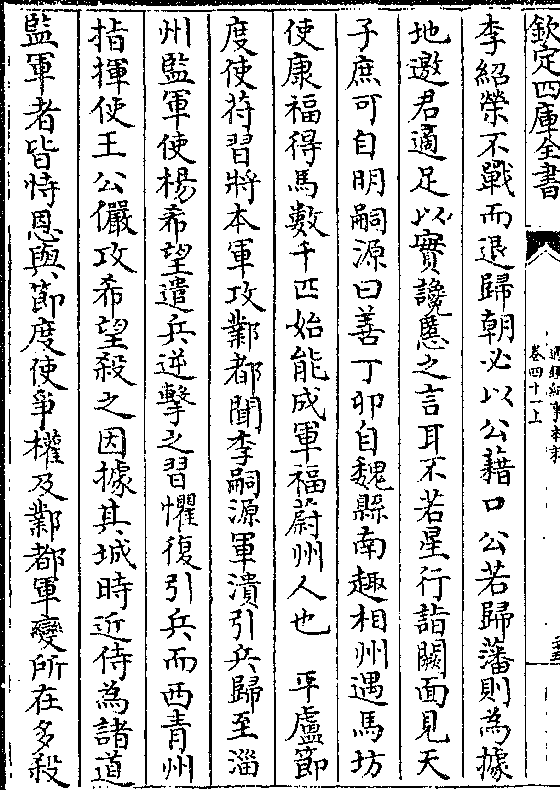 欽定四庫全書
卷四十一上
李紹榮不戰而退歸朝必以公藉口公若歸藩則為據
地邀君適足以實讒慝之言耳不若星行詣闕面見天
子庶可自明嗣源曰善丁卯自魏縣南趣相州遇馬坊
使康福得馬數千匹始能成軍福蔚州人也　平盧節
度使苻習將本軍攻鄴都聞李嗣源軍潰引兵歸至淄
州監軍使楊希望遣兵逆擊之習懼復引兵而西青州
指揮使王公儼攻希望殺之因據其城時近侍為諸道
監軍者皆恃恩與節度使爭權及鄴都軍變所在多殺